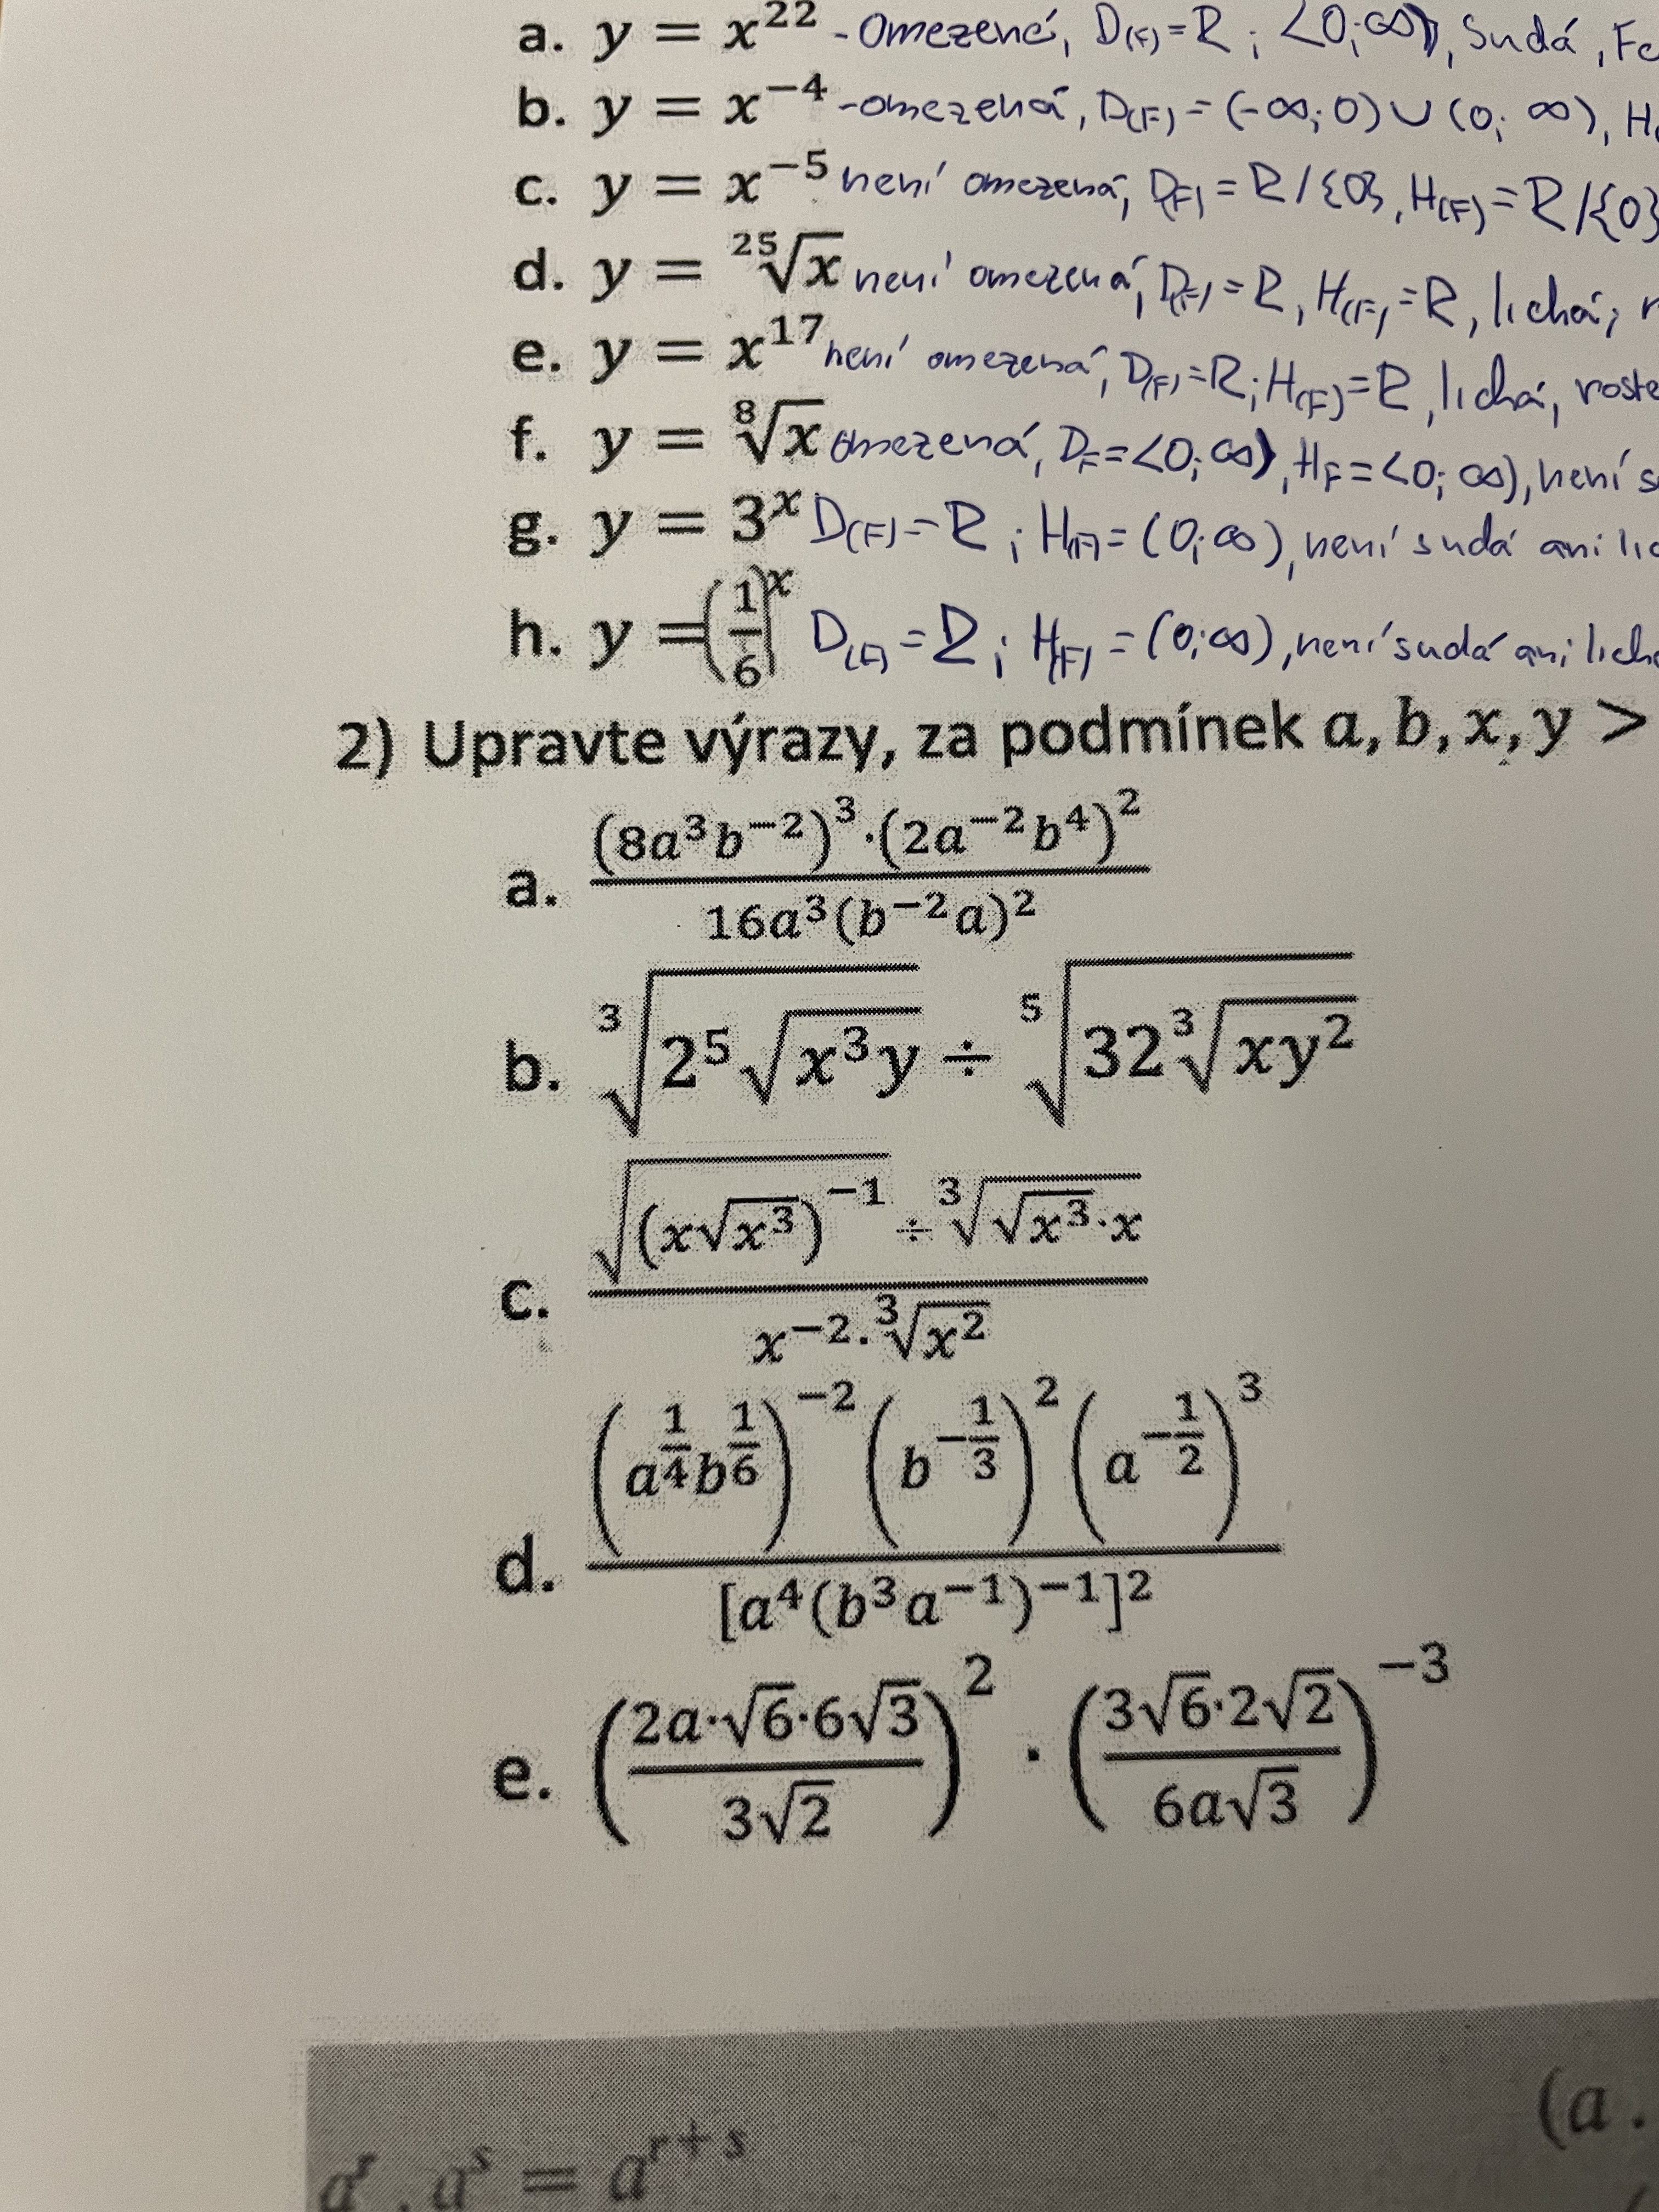 a. y = x^22 - omezené, D(F)=R; <0;∞), Sudá, Fc
b. y = x^−4 -omezená, D(F)=(-∞;0)∪(0;∞), H
c. y = x^−5 není omezená, D(F)=R/{0}, H(F)=R/{0}
d. y = ²⁵√x není omezená, D(F)=R, H(F)=R, lichá, r
e. y = x^17 není omezená, D(F)=R; H(F)=R, lichá, roste
f. y = ⁸√x omezená, DF=<0;∞), HF=<0;∞), není s
g. y = 3^x D(F)=R; H(F)=(0;∞), není sudá ani lic
h. y = (1/6)^x D(F)=R; H(F)=(0;∞), není sudá ani lich
2) Upravte výrazy, za podmínek a, b, x, y >
a. ((8a^3b^−2)^3·(2a^−2b^4)^2)/(16a^3(b^−2a)^2)
b. ³√(2⁵√(x^3y)) ÷ ⁵√(32³√(xy^2))
c. (√((x√(x^3))^−1) ÷ ³√(√(x^3)·x))/(x^−2·³√(x^2))
d. ((a^(1/4)b^(1/6))^−2(b^(−1/3))^2(a^(−1/2))^3)/([a^4(b^3a^−1)^−1]^2)
e. ((2a·√6·6√3)/(3√2))^2 · ((3√6·2√2)/(6a√3))^−3
(a .
a^r . a^s = a^(r+s)